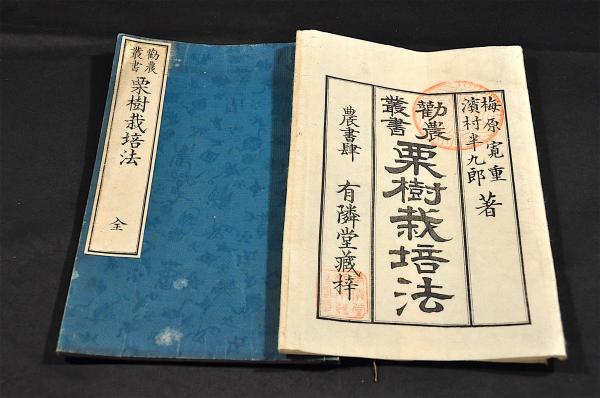 勸農叢書
栗樹栽培法
全
梅原寛重
濱村半九郎
著
勸農叢書
栗樹栽培法
農書肆
有隣堂藏梓